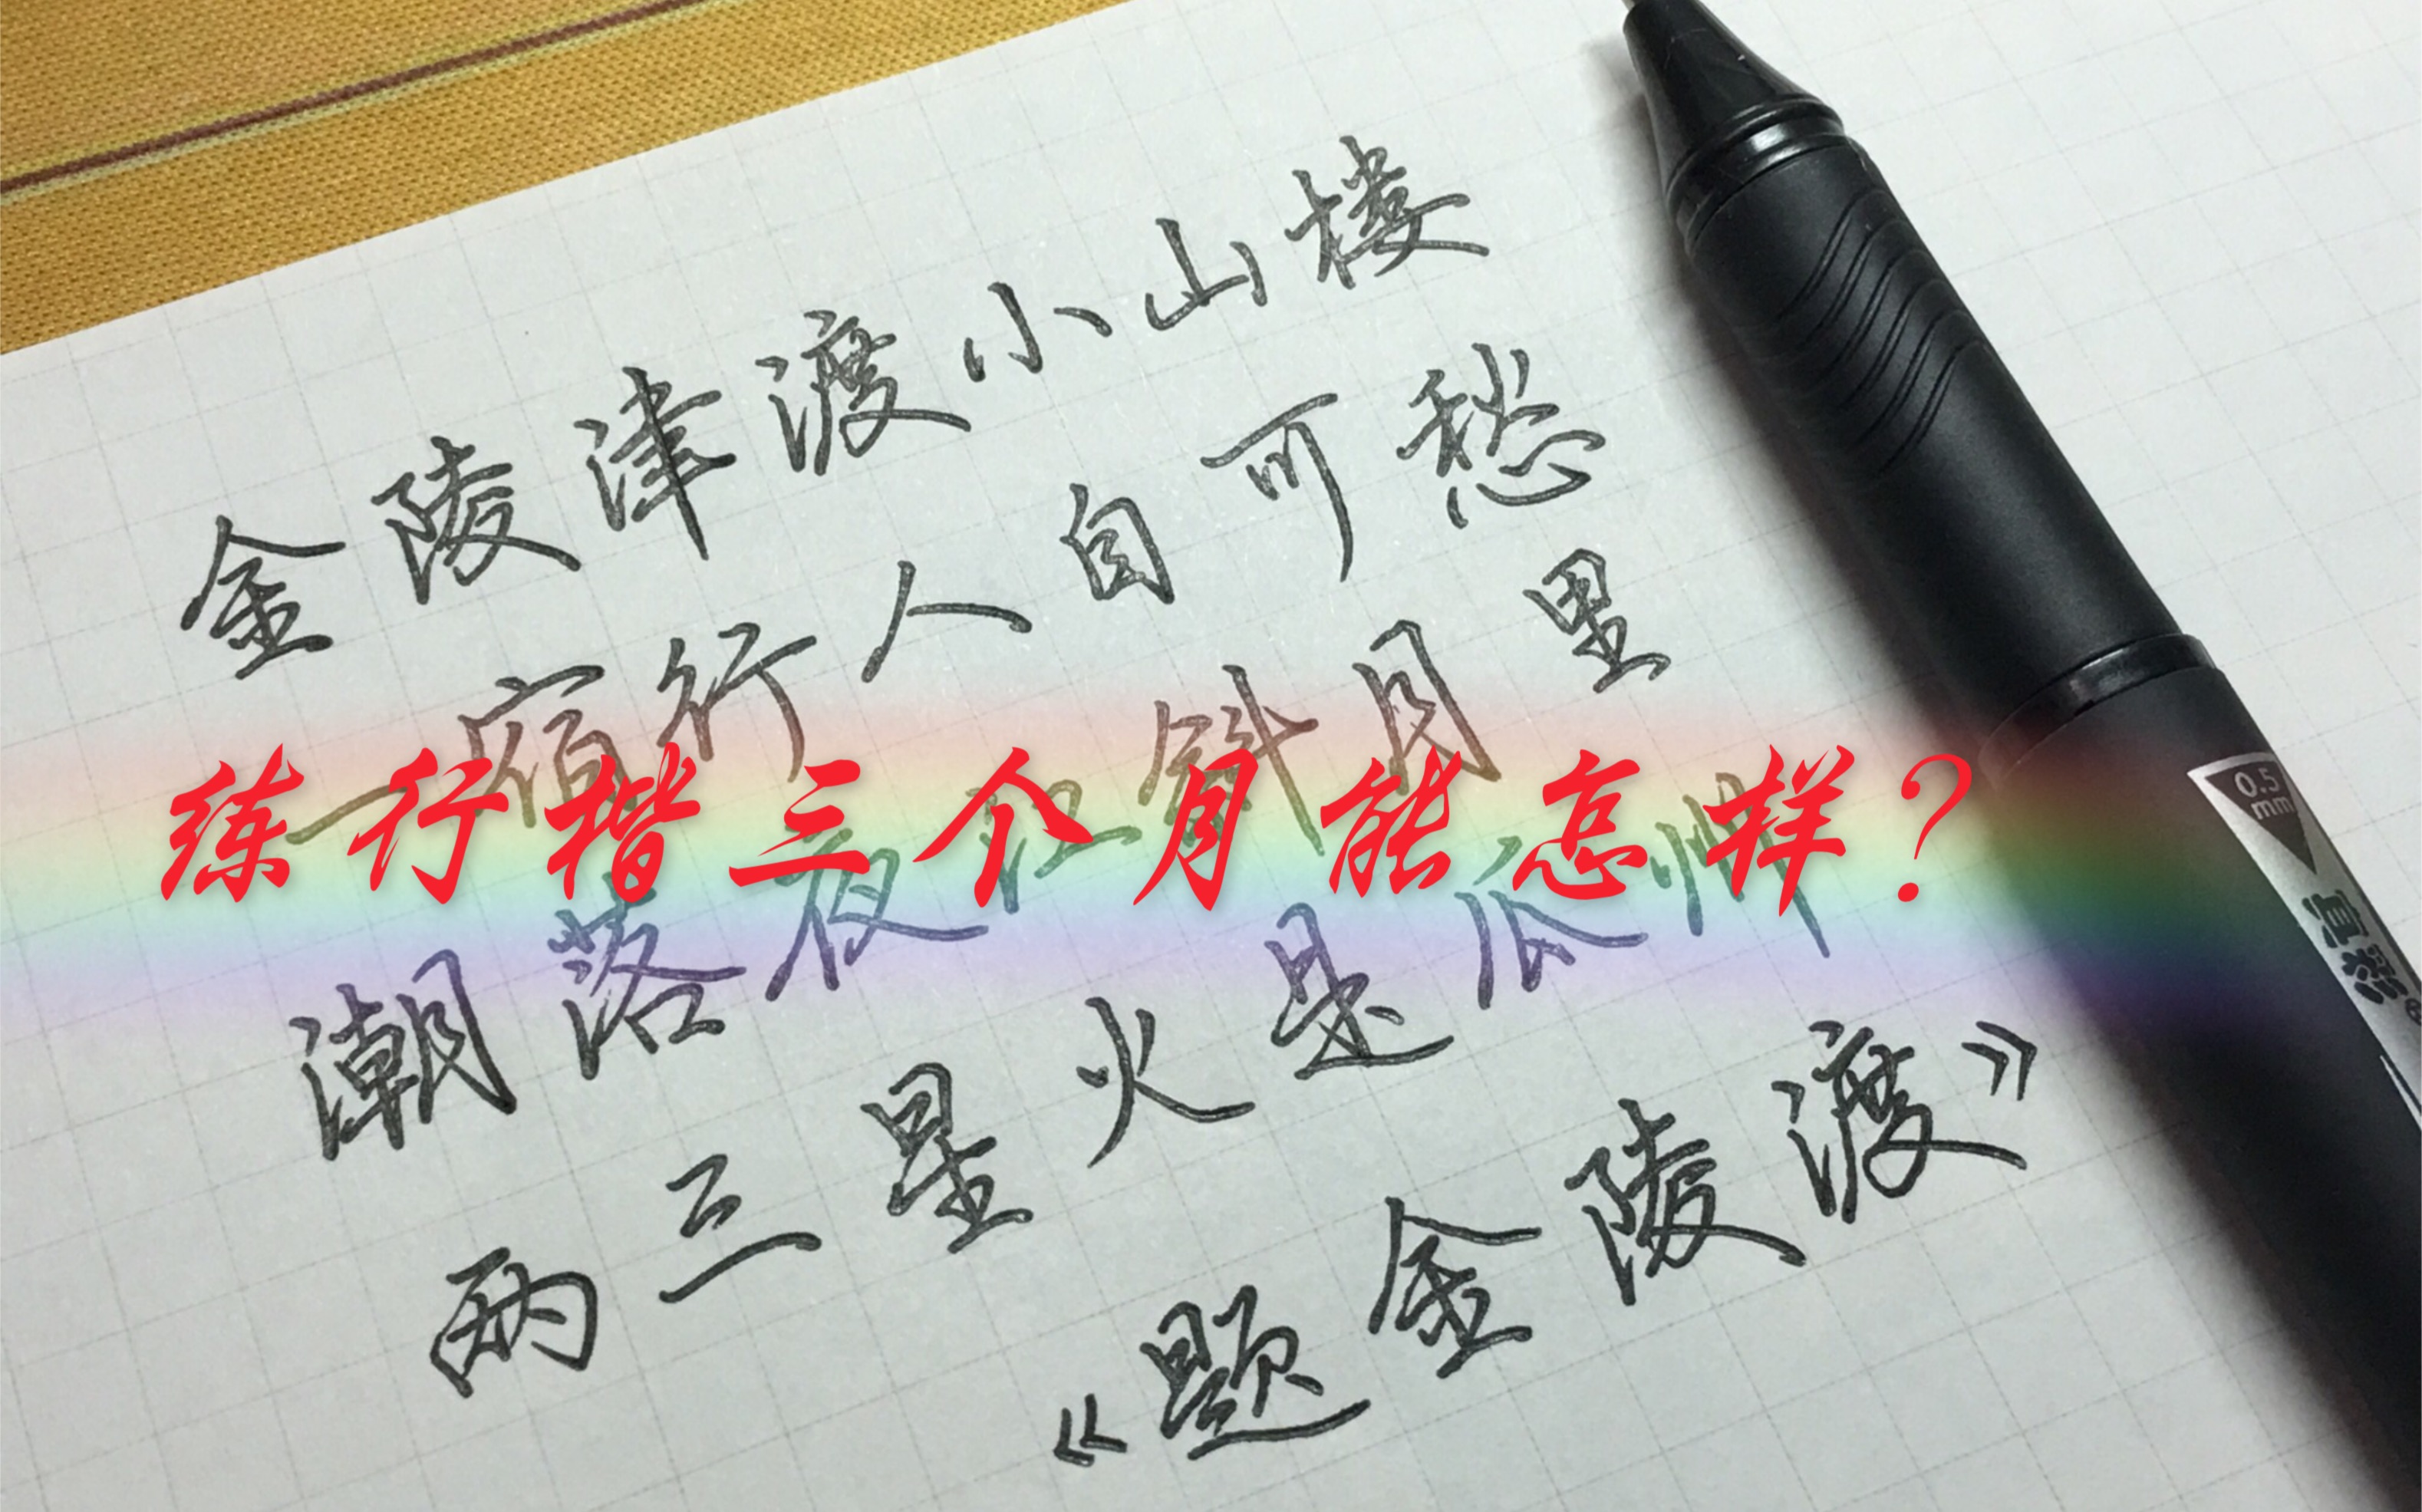 金陵津渡小山楼
一宿行人自可愁
潮落夜江斜月里
两三星火是瓜州
《题金陵渡》
练行楷三个月能怎样？
0.5
mm
真彩